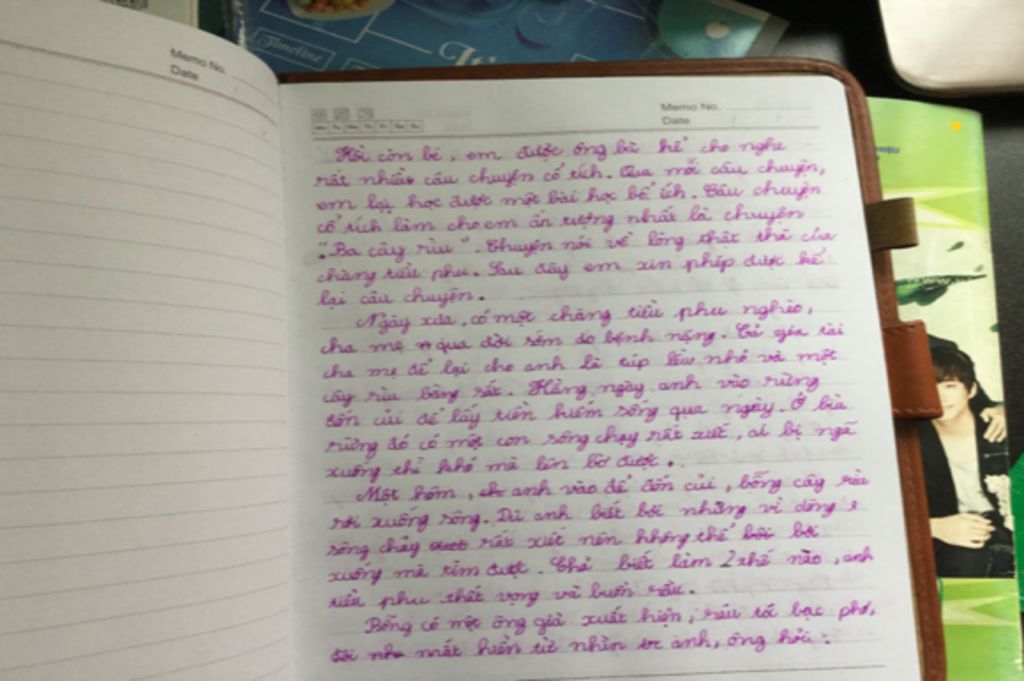 Timeline
It's
Memo No.
Date
Memo No.
Date
Mo Tu We Th Fr Sa Su
Hồi còn bé, em được ông bà kể cho nghe
rất nhiều câu chuyện cổ tích. Qua mỗi câu chuyện,
em lại học được một bài học bổ ích. Câu chuyện
cổ tích làm cho em ấn tượng nhất là chuyện
"Ba cây rìu". Chuyện nói về lòng thật thà của
chàng tiều phu. Sau đây em xin phép được kể
lại câu chuyện.
Ngày xưa, có một chàng tiều phu nghèo,
cha mẹ qua đời sớm do bệnh nặng. Cả gia tài
cha mẹ để lại cho anh là túp lều nhỏ và một
cây rìu bằng sắt. Hằng ngày anh vào rừng
đốn củi để lấy tiền kiếm sống qua ngày. Ở bìa
rừng đó có một con sông chạy rất xiết, ai bị ngã
xuống thì khó mà lên bờ được.
Một hôm, anh vào để đốn củi, bỗng cây rìu
rơi xuống sông. Dù anh biết bơi nhưng vì dòng
sông chảy rất xiết nên không thể bơi
xuống mà tìm được. Chả biết làm thế nào, anh
tiều phu thất vọng và buồn rầu.
Bỗng có một ông già xuất hiện, râu tóc bạc phơ,
đôi mắt hiền từ nhìn anh, ông hỏi: